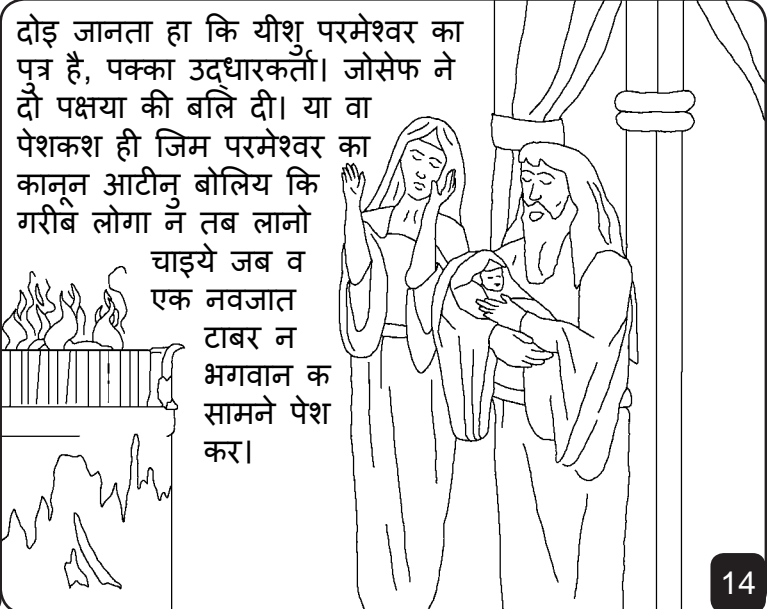 दोइ जानता हा कि यीशु परमेश्वर का
पुत्र है, पक्का उद्धारकर्ता। जोसेफ ने
दो पक्षया की बलि दी। या वा
पेशकश ही जिम परमेश्वर का
कानून आटीनु बोलिय कि
गरीब लोगा न तब लानो
चाइये जब व
एक नवजात
टाबर न
भगवान क
सामने पेश
कर।
14